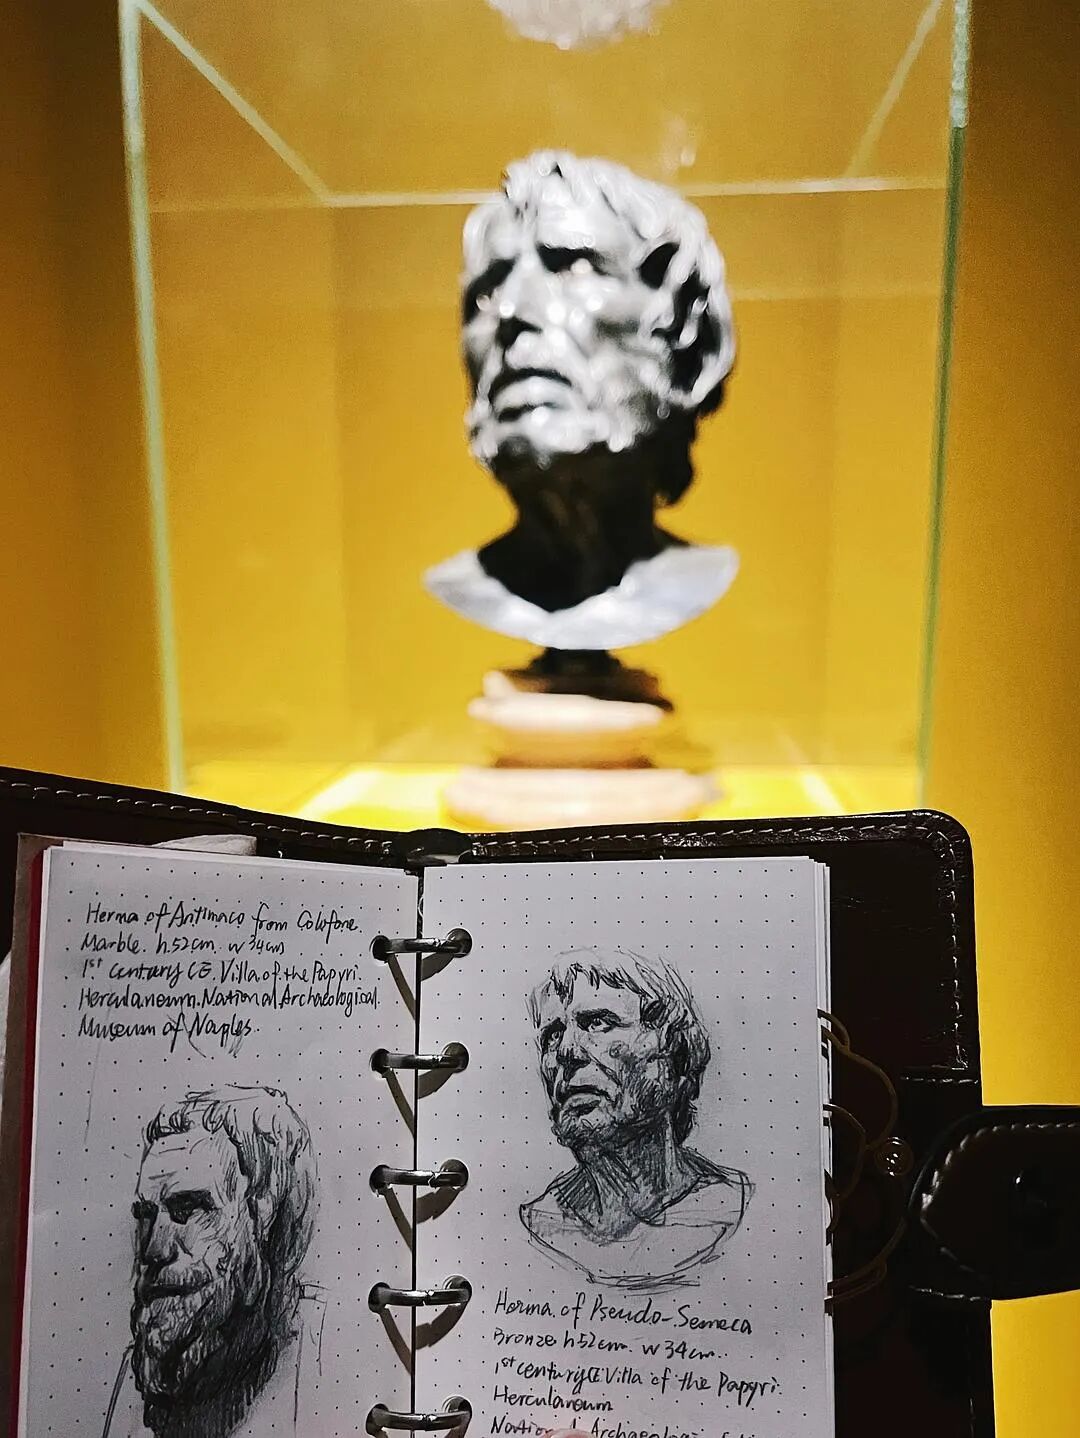 Herma of Antimaco from Colofone.
Marble. h.52cm. w 34cm
1st century CE. Villa of the Papyri.
Herculaneum. National Archaeological.
Museum of Naples.
Herma of Pseudo-Seneca
Bronze h52cm. w 34cm.
1st century CE Villa of the Papyri.
Herculaneum
National Archaeologi